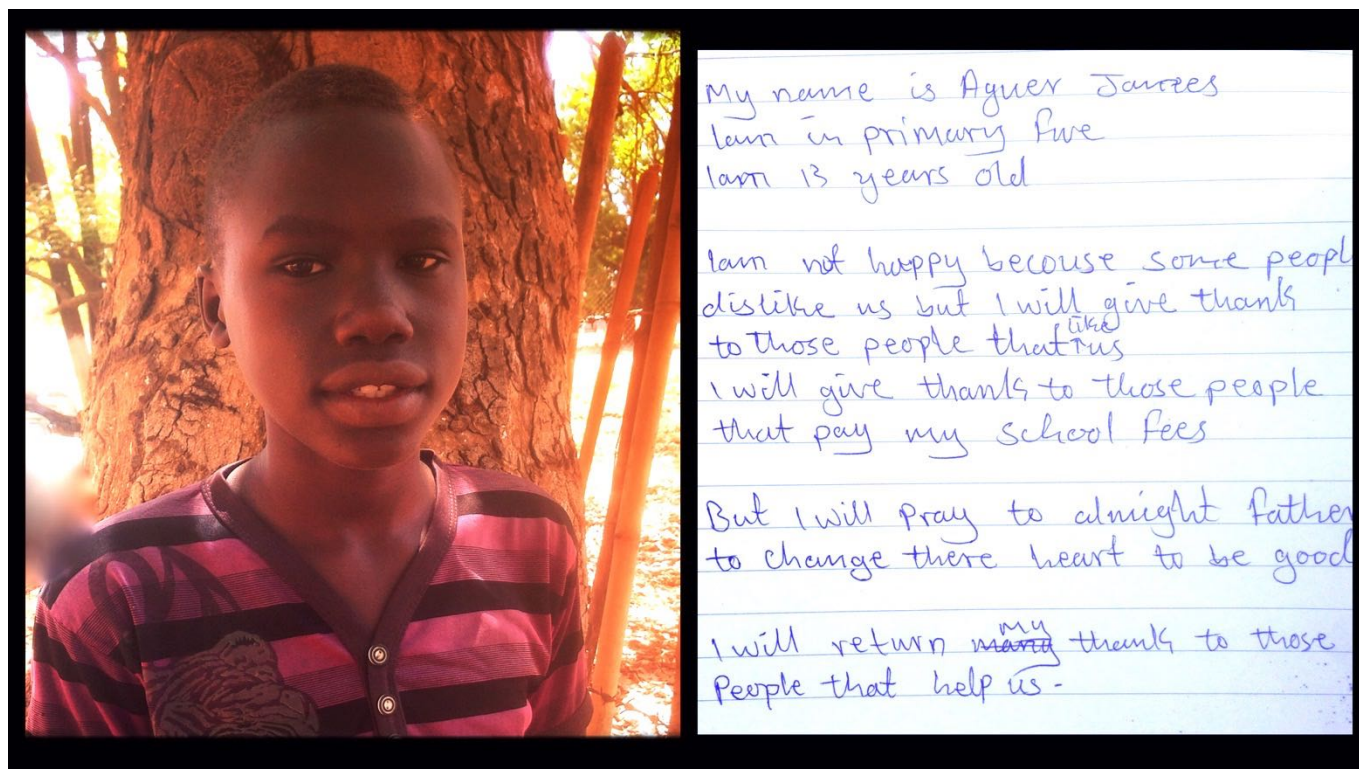 My name is Aguer James
Iam in primary five
Iam 13 years old
Iam not happy becouse some peopl
dislike us but I will give thank
to those people that like us
I will give thank to those people
that pay my school fees
But I will pray to almight father
to change there heart to be good
I will return my thank to those
People that help us-